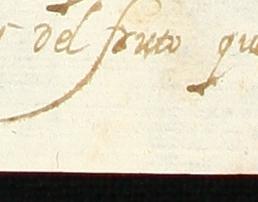 del fruto qu